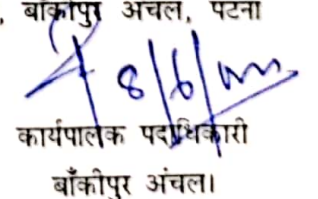 , बाँकीपुर अंचल, पटना
8/6/
कार्यपालक पदाधिकारी
बाँकीपुर अंचल।